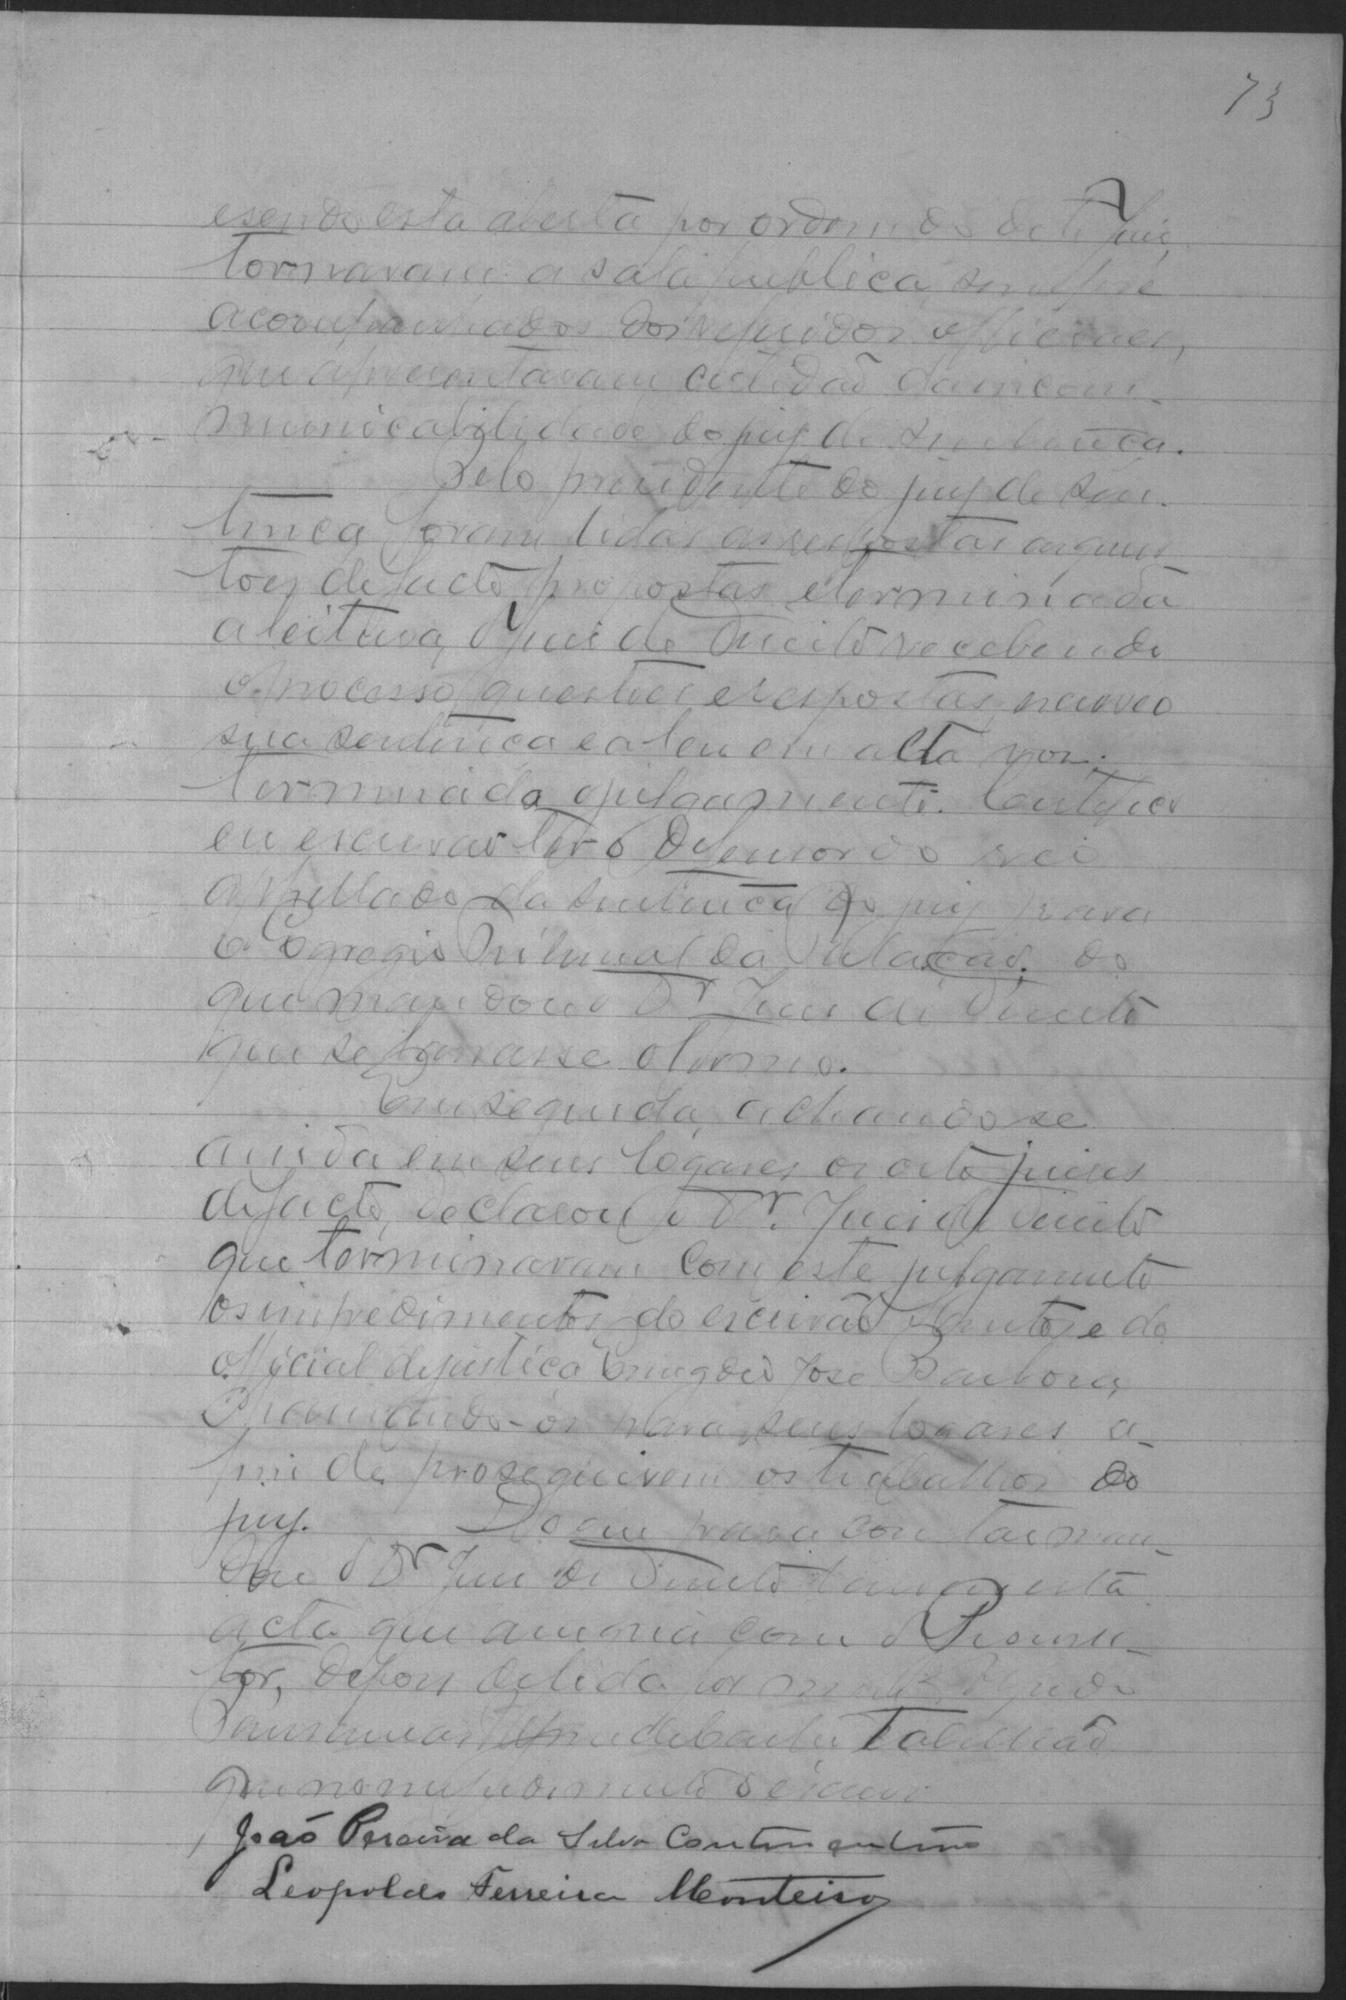 73
e sendo esta aberta por ordem do dito Juiz,
tornaram a sala publica, sempre
acompanhados dos referidos officiaes,
que apresentaram certidão da incom-
municabilidade do jury de sentença.
Pelo presidente do jury de sen-
tença foram lidas as respostas as ques
tões de facto propostas e terminada
a leitura, o Juiz de Direito recebendo
o processo, questões e respostas, escreveo
sua sentença e a leu em alta voz;
terminado o julgamento. Certifico
eu escrivão ter o defensor do reo
appellado da sentença do jury para
o Egregio Tribunal da Relação, do
que mandou o Dr. Juiz de Direito
que se lavrasse o termo.
Em seguida, achando se
ainda em seus logares os oito juises
de facto, declarou o Dr. Juiz de Direito
que terminavam com este julgamento
os impedimentos do escrivão e do
official de justica José Barbosa,
os para seus logares a-
fim de proseguirem os trabalhos do
jury. Do que para constar man-
dou o Dr. Juiz de Direito lavrar esta
acta que assigna com o Promo-
tor, depois de lida por mim
Tabellião
que no impedimento o escrevi.
João Pereira da Silva
Leopoldo Ferreira Monteiro